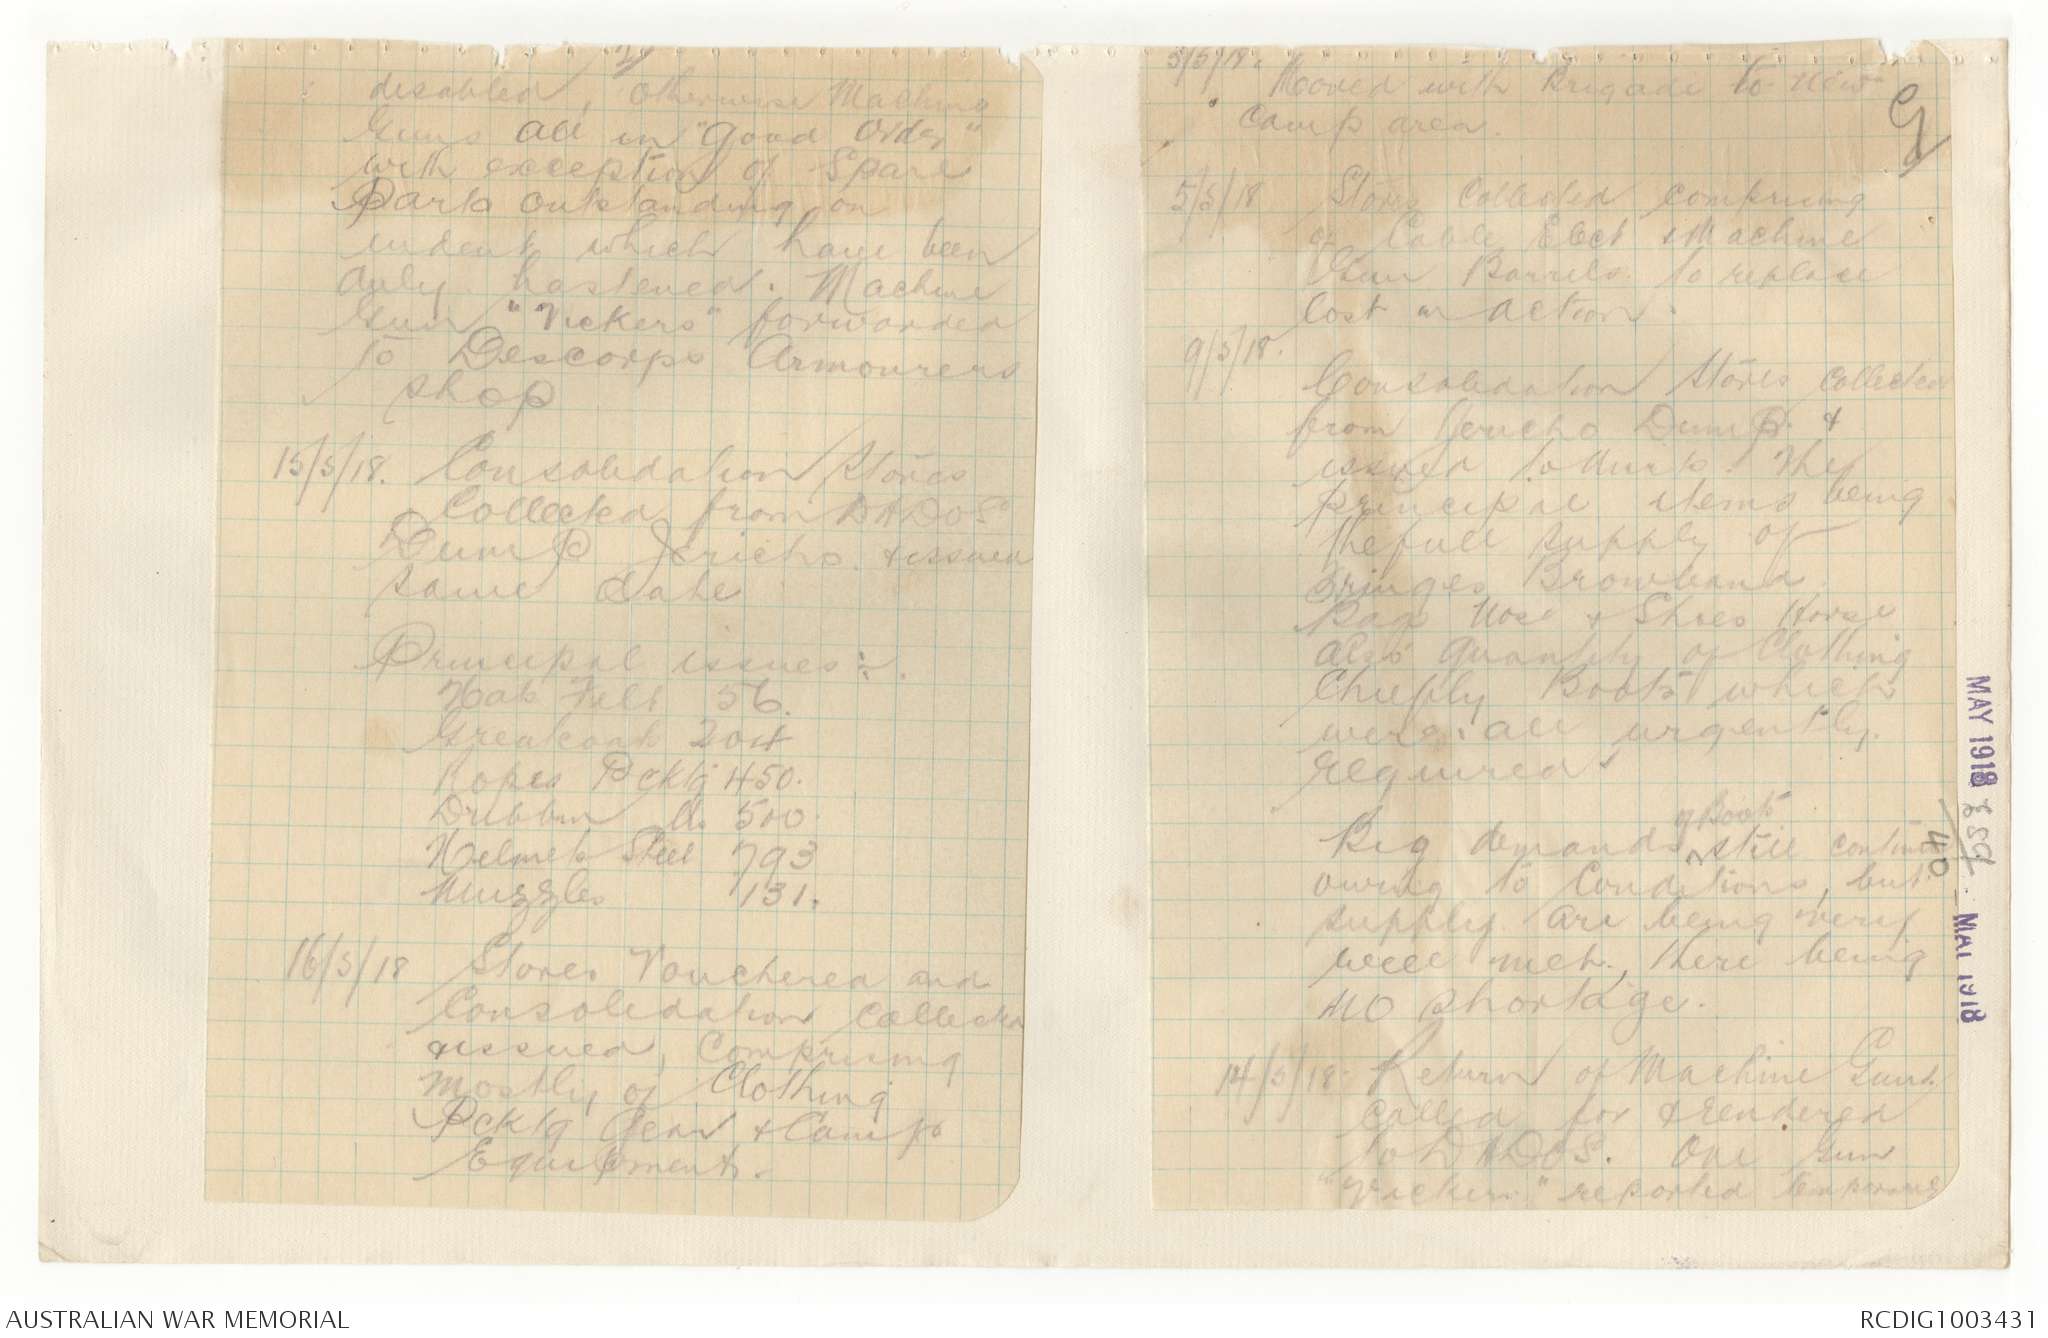 disabled, otherwise Machine
Guns all in "good order"
with exception of Spare
Parts outstanding on
indents which have been
duly hastened. Machine
Gun "Vickers" forwarded
to Descorps Armourers
shop
15/5/18. Consolidation Stores
Collected from DADOS
Dump Jericho. & issued
same date
Principal issues:-.
Hats Felt 56.
Greatcoats 204
Ropes Pcktg 450.
Dubbin lbs 500.
Helmets Steel 793
Muzzles 131.
16/5/18 Stores Vouchered and
Consolidation Collected
& issued, comprising
mostly of Clothing
Pcktg Gear & Camp
Equipment.
3/5/18.
Moved with Brigade to new
camp area.
5/5/18 Stores Collected comprising
of Cable Elect & Machine
Gun Barrels. to replace
lost in action.
9/5/18.
Consolidation Stores collected
from Jericho Dump. &
issued to Units. The
principal items being
the full supply of
Fringes Browband.
Bags Nose & Shoes Horse
also quantity of Clothing
Chiefly Boots which
were all urgently.
required.
of Boots
Big demands still continue
owing to Conditions, but
supply. are being very
well met., there being
no shortage.
14/5/18. Return of Machine Guns.
called for & rendered
to DADOS. One Gun
"Vickers." reported temporarily
MAY 1918
40
MAY 1918
AUSTRALIAN WAR MEMORIAL
RCDIG1003431